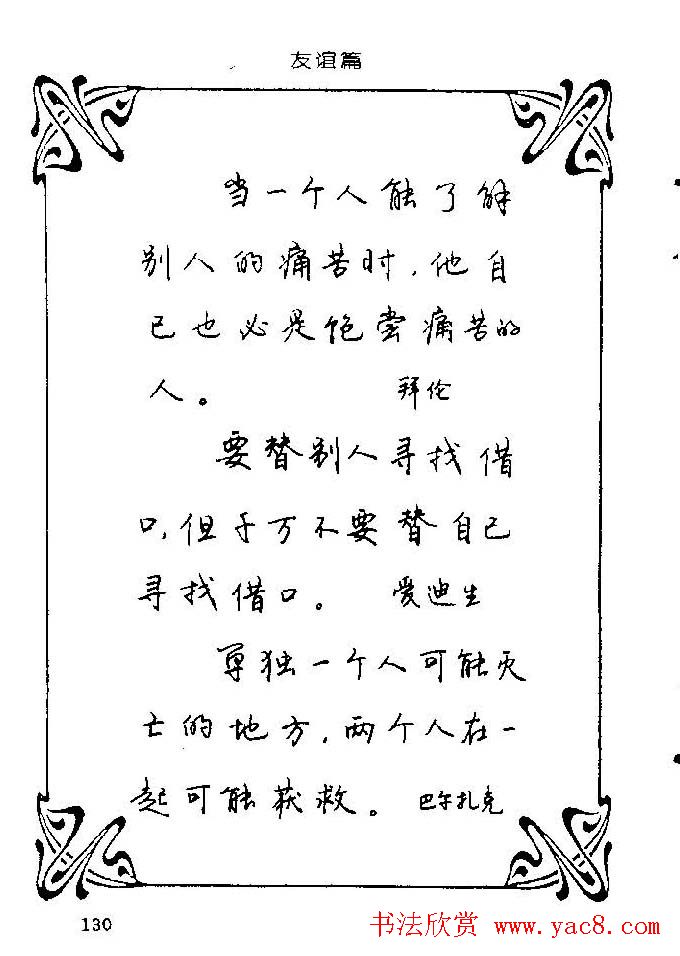 友谊篇
当一个人能了解
别人的痛苦时，他自
己也必是饱尝痛苦的
人。 拜伦
要替别人寻找借
口，但千万不要替自己
寻找借口。 爱迪生
单独一个人可能灭
亡的地方，两个人在一
起可能获救。 巴尔扎克
130
书法欣赏 www.yac8.com